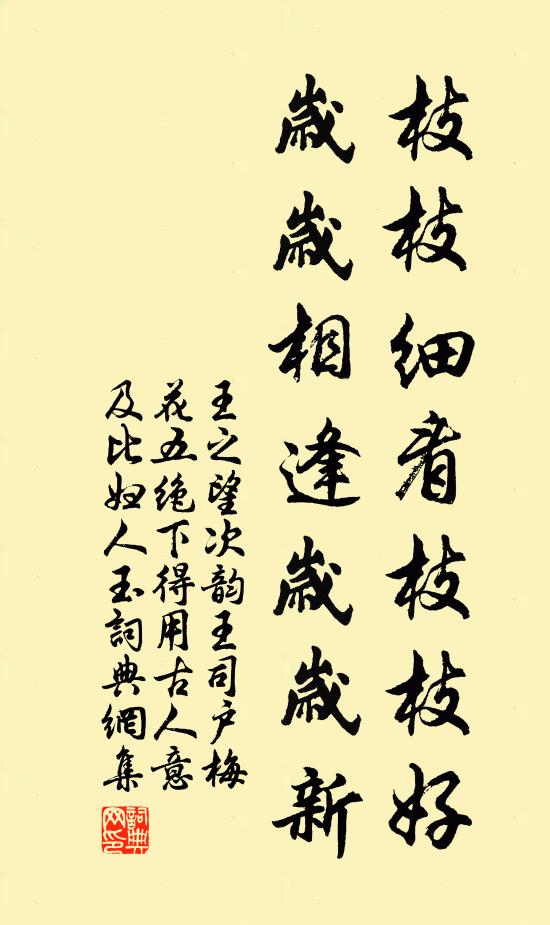 枝枝细看枝枝好
歲歲相逢歲歲新
王之望次韵王司户梅
花五绝下得用古人意
及比妞人玉詞典網集
詞典網印